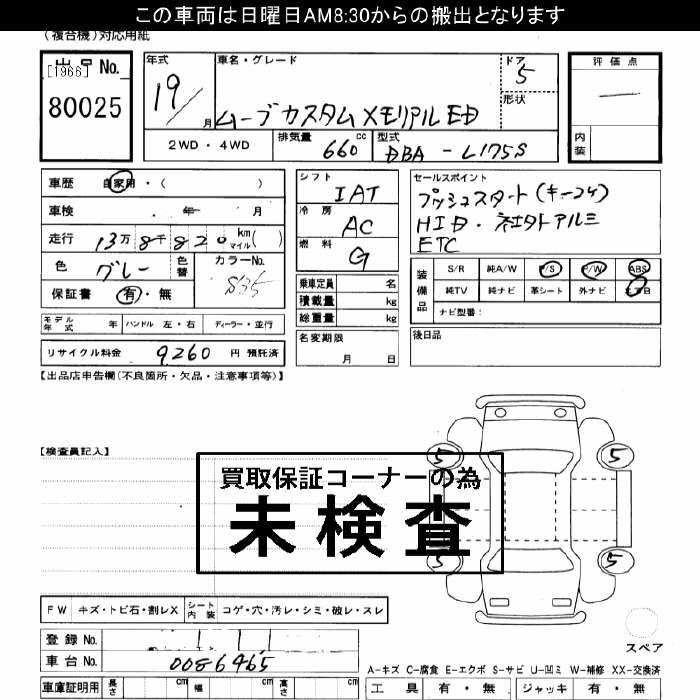 この車両は日曜日AM8:30からの搬出となります
(複合機)対応用紙
出品 No.
[1966]
80025
年式
19/
月
車名・グレード
ムーブカスタムメモリアルED
ドア
5
形状
評価点
内装
2WD・4WD
排気量
660 cc
型式
DBA-L175S
車歴
自家用・( )
車検
年 月
走行
13万8千820 kmマイル( )
色
グレー
色替
カラーNo.
S35
保証書
有・無
モデル年式 年
ハンドル 左・右
ディーラー・並行
リサイクル料金 9260 円 預託済
シフト
IAT
冷房
AC
燃料
G
乗車定員 名
積載量 kg
総重量 kg
名変期限
月 日
セールスポイント
プッシュスタート(キーコ付)
HID・社外アルミ
ETC
装備品
S/R 純A/W P/S P/W ABS
純TV 純ナビ 革シート 外ナビ エアB
ナビ型番:
後日品
【出品店申告欄(不良箇所・欠品・注意事項等)】
【検査員記入】
買取保証コーナーの為
未検査
5
5
5
5
スペア
FW キズ・トビ石・割レX
シート内装 コゲ・穴・汚レ・シミ・破レ・スレ
登録 No.
車台 No. 0086465
車庫証明用 長さ cm 幅 cm 高さ cm
A-キズ C-腐食 E-エクボ S-サビ U-凹ミ W-補修 XX-交換済
工具 有・無 ジャッキ 有 無